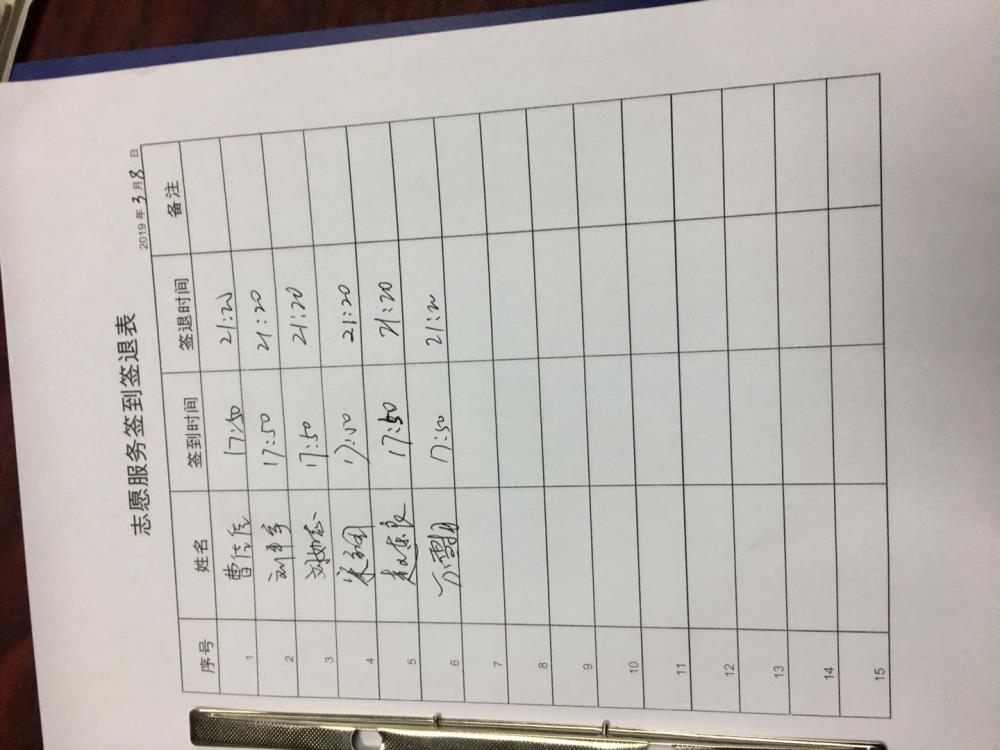 志愿服务签到签退表
2019年3月8日
序号 姓名 签到时间 签退时间 备注
1 17:50 21:20
2 刘 17:50 21:20
3 刘 17:50 21:20
4 17:50 21:20
5 17:50 21:20
6 17:50 21:20
7
8
9
10
11
12
13
14
15